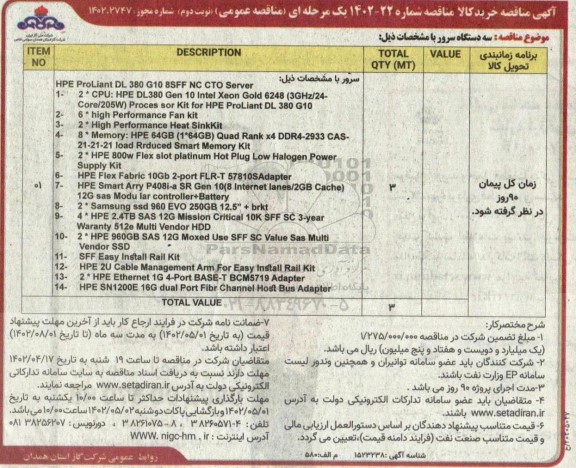 آگهی مناقصه خرید کالا مناقصه شماره ۲۲-۱۴۰۲ یک مرحله ای (مناقصه عمومی) (نوبت دوم) شماره مجوز ۱۴۰۲.۲۷۴۷
موضوع مناقصه: سه دستگاه سرور با مشخصات ذیل:
ITEM NO
DESCRIPTION
TOTAL QTY (MT)
VALUE
برنامه زمانبندی تحویل کالا
سرور با مشخصات ذیل:
HPE ProLiant DL 380 G10 8SFF NC CTO Server
1- 2 * CPU: HPE DL380 Gen 10 Intel Xeon Gold 6248 (3GHz/24-
Core/205W) Proces sor Kit for HPE ProLiant DL 380 G10
2- 6 * high Performance Fan kit
3- 2 * High Performance Heat SinkKit
4- 8 * Memory: HPE 64GB (1*64GB) Quad Rank x4 DDR4-2933 CAS-
21-21-21 load Rrduced Smart Memory Kit
5- 2 * HPE 800w Flex slot platinum Hot Plug Low Halogen Power
Supply Kit
6- HPE Flex Fabric 10Gb 2-port FLR-T 57810SAdapter
7- HPE Smart Arry P408i-a SR Gen 10(8 Internet lanes/2GB Cache)
12G sas Modu lar controller+Battery
8- 2 * Samsung ssd 960 EVO 250GB 12.5" + brkt
9- 4 * HPE 2.4TB SAS 12G Mission Critical 10K SFF SC 3-year
Waranty 512e Multi Vendor HDD
10- 2 * HPE 960GB SAS 12G Moxed Use SFF SC Value Sas Multi
Vendor SSD
11- SFF Easy Install Rail Kit
12- HPE 2U Cable Management Arm For Easy Install Rail Kit
13- 2 * HPE Ethernet 1G 4-Port BASE-T BCM5719 Adapter
14- HPE SN1200E 16G dual Port Fibr Channel Host Bus Adapter
۰۱
۳
زمان کل پیمان
۹۰روز
در نظر گرفته شود.
TOTAL VALUE
۳
شرح مختصرکار:
۱-مبلغ تضمین شرکت در مناقصه ۱/۲۷۵/۰۰۰/۰۰۰
(یک میلیارد و دویست و هفتاد و پنج میلیون) ریال می باشد.
۲-شرکت کنندگان باید عضو سامانه توانیران و همچنین وندور لیست
سامانه EP وزارت نفت باشند.
۳-مدت اجرای پروژه ۹۰ روز می باشد .
۴- متقاضیان باید عضو سامانه تدارکات الکترونیکی دولت به آدرس
www.setadiran.ir باشند.
۶- قیمت متناسب پیشنهاد دهندگان بر اساس دستورالعمل ارزیابی مالی
و قیمت متناسب صنعت نفت (فرایند دامنه قیمت)،تعیین می گردد.
شناسه آگهی: ۱۵۲۳۲۳۸ م الف:۵۸۰
۷-ضمانت نامه شرکت در فرایند ارجاع کار باید از آخرین مهلت پیشنهاد
قیمت (به تاریخ ۱۴۰۲/۰۵/۰۱) به مدت سه ماه (تا تاریخ ۱۴۰۲/۰۸/۰۱)
اعتبار داشته باشد.
متقاضیان شرکت در مناقصه تا ساعت ۱۹ شنبه به تاریخ ۱۴۰۲/۰۴/۱۷
مهلت دارند نسبت به دریافت اسناد مناقصه به سایت سامانه تدارکاتی
الکترونیکی دولت به آدرس www.setadiran.ir مراجعه نمایند.
مهلت بارگذاری پیشنهادات حداکثر تا ساعت ۱۰/۰۰ یکشنبه به تاریخ
۱۴۰۲/۰۵/۰۱ وبازگشایی پاکات دوشنبه ۱۴۰۲/۰۵/۰۲ ساعت ۱۰/۰۰ می باشد.
تلفن : ۴-۳۸۲۶۰۵۷۱ ، ۸-۳۸۲۶۱۰۷۵ ، دورنویس : ۳۸۲۵۶۲۰۷ ۰۸۱
آدرس اینترنت : WWW. nigc-hm . ir
روابط عمومی شرکت گاز استان همدان
ParsNamadData